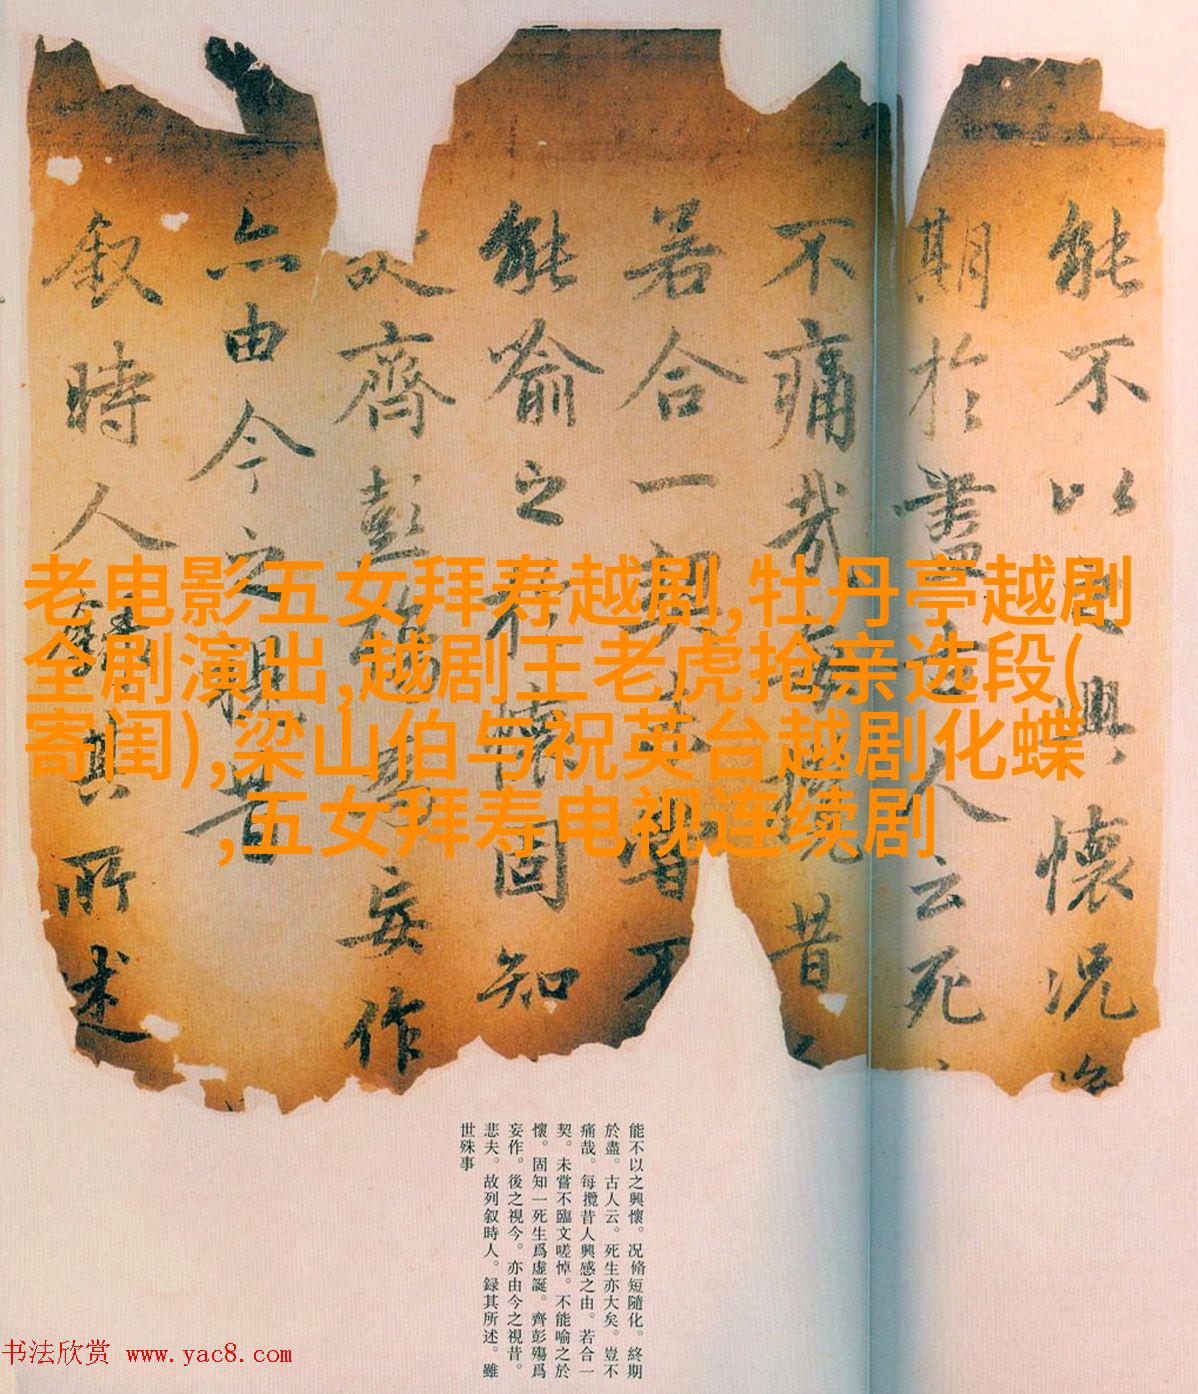 能不以之興懷况
期於盡古人云死
不痛哉每攬昔
若合一契未嘗不
能喻之於懷固知
齊彭殤爲妄作
亦由今之視昔
叙時人錄其所述
老电影五女拜寿越剧,牡丹亭越剧
全剧演出,越剧王老虎抢亲选段(
寄闺),梁山伯与祝英台越剧化蝶
,五女拜寿电视连续剧
能不以之興懷。况脩短隨化。終期
於盡。古人云。死生亦大矣。豈不
痛哉。每攬昔人興感之由。若合一
契。未嘗不臨文嗟悼。不能喻之於
懷。固知一死生爲虛誕。齊彭殤爲
妄作。後之視今。亦由今之視昔。
悲夫。故列叙時人。録其所述。雖
世殊事
书法欣赏 www.yac8.com